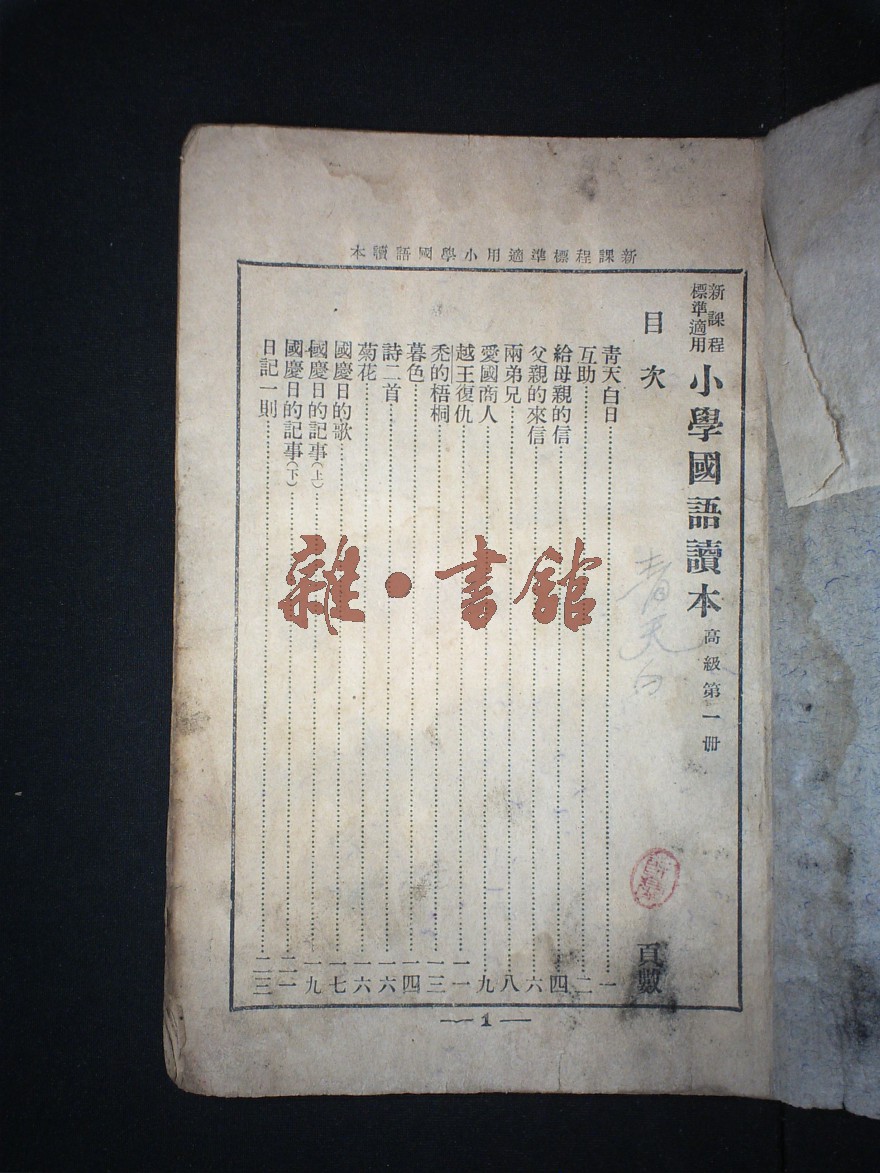 新課程標準適用小學國語讀本
新課程標準適用 小學國語讀本 高級第一册
目次 頁數
青天白日 一
互助 二
給母親的信 四
父親的來信 六
兩弟兄 八
愛國商人 九
越王復仇 一一
禿的梧桐 一三
暮色 一四
詩二首 一六
菊花 一六
國慶日的歌 一七
國慶日的記事(上) 一九
國慶日的記事(下) 二一
日記一則 二三
青天白
雜·書館
— 1 —